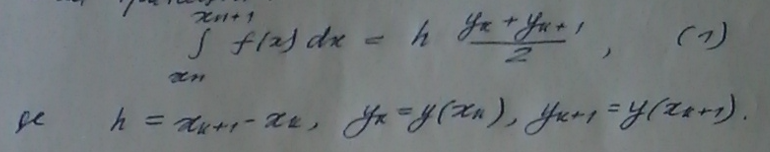 x_{n+1}
∫ f(x) dx = h (y_n + y_{n+1})/2 , (1)
x_n
де h = x_{n+1} - x_n, y_n = y(x_n), y_{n+1} = y(x_{n+1}).